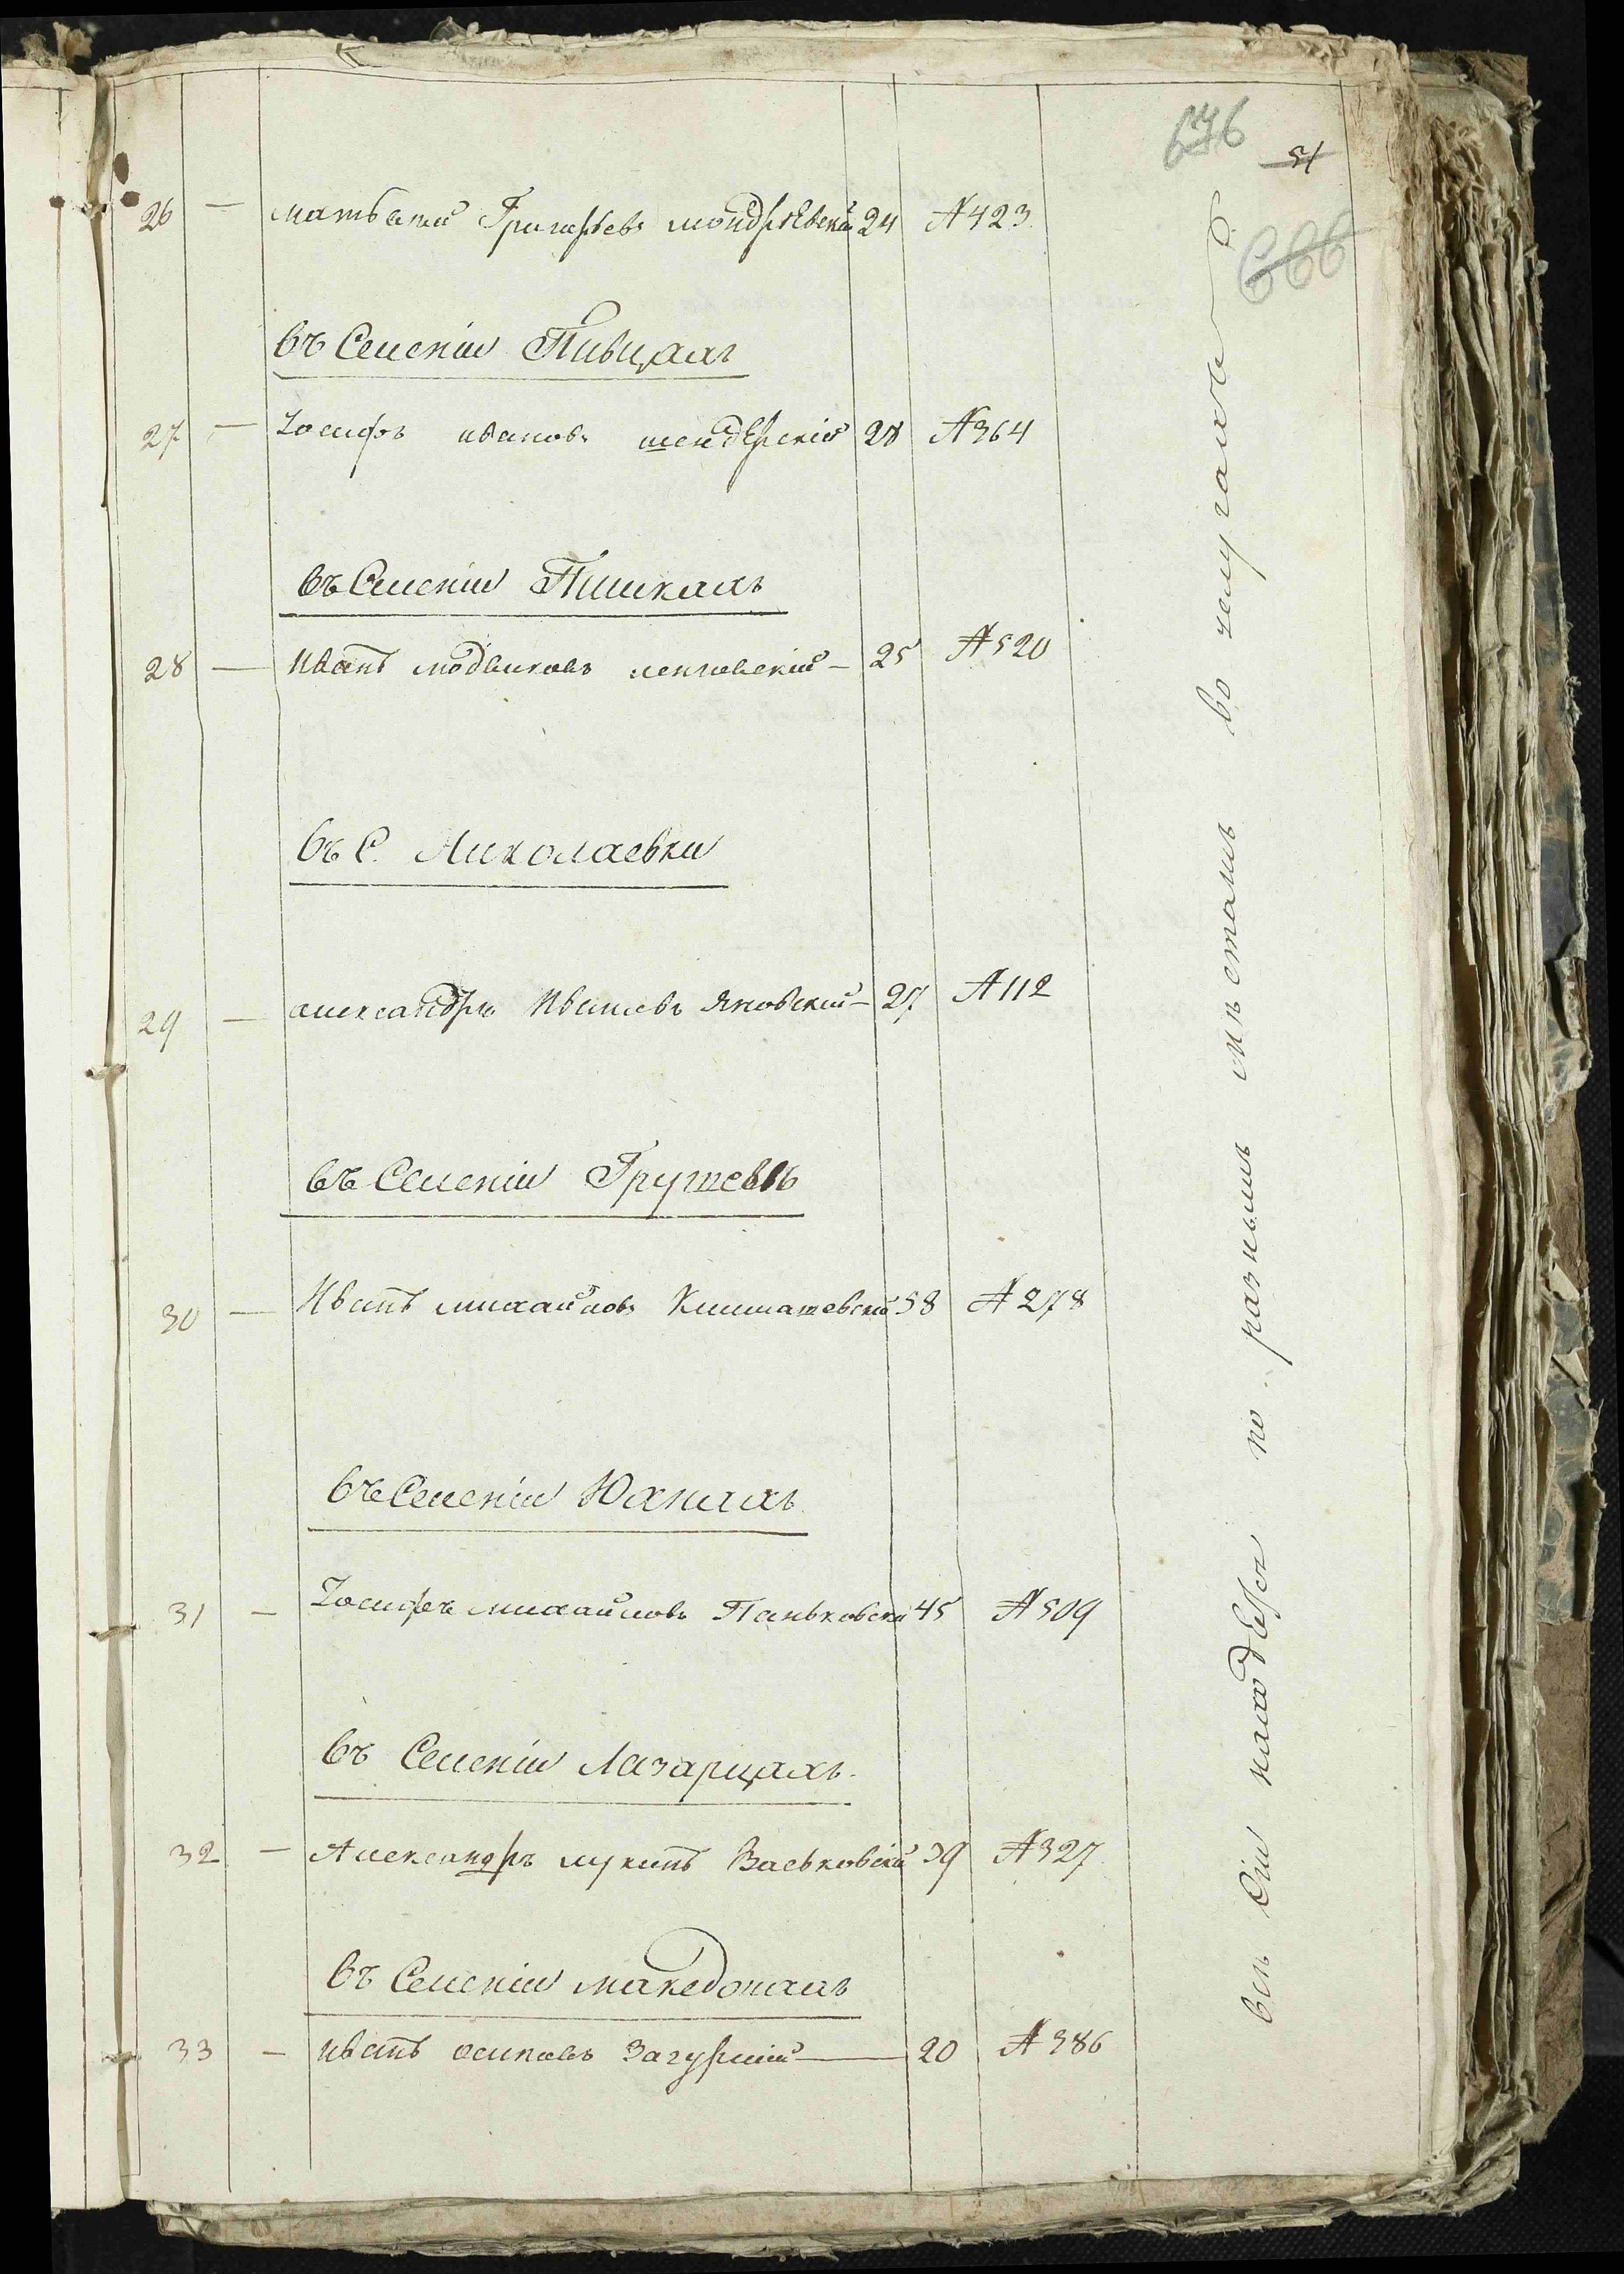 676
51
666
26 — Матвѣй Григорьевъ Мондржевскій 24 №423
Въ Селеніи Пивцахъ
27 — Іосифъ Ивановъ Шендерскій 28 №364
Въ Селеніи Пиикахъ
28 — Иванъ Людвиковъ Ленчевскій — 25 №520
Въ С. Николаевки
29 — Александръ Ивановъ Яновскій — 27 №112
Въ Селеніи Грушевѣ
30 — Иванъ Михайловъ Климашевскій 58 №278
Въ Селеніи Юхнахъ
31 — Іосифъ Михайловъ Паньковскій 45 №509
Въ Селеніи Лазарцахъ
32 — Александръ Лукинъ Васьковскій 39 №327
Въ Селеніи Македонахъ
33 — Иванъ Осиповъ Загурскій — 20 №386
Всѣ Сіи находятся по разнымъ мѣстамъ во услугахъ